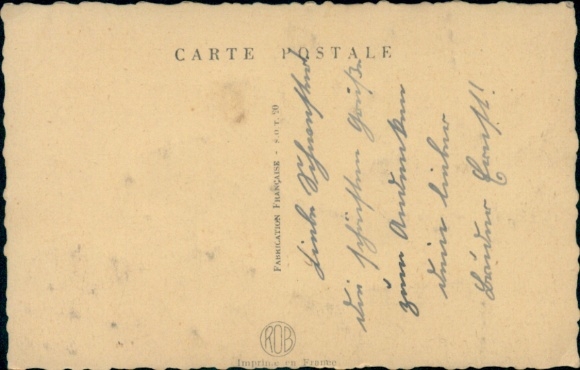 CARTE POSTALE
FABRICATION FRANÇAISE -
Liebe Schwester
die schönsten Grüße
zum Andenken
dein lieber
Bruder Ernst!
ROB
Imprimé en France